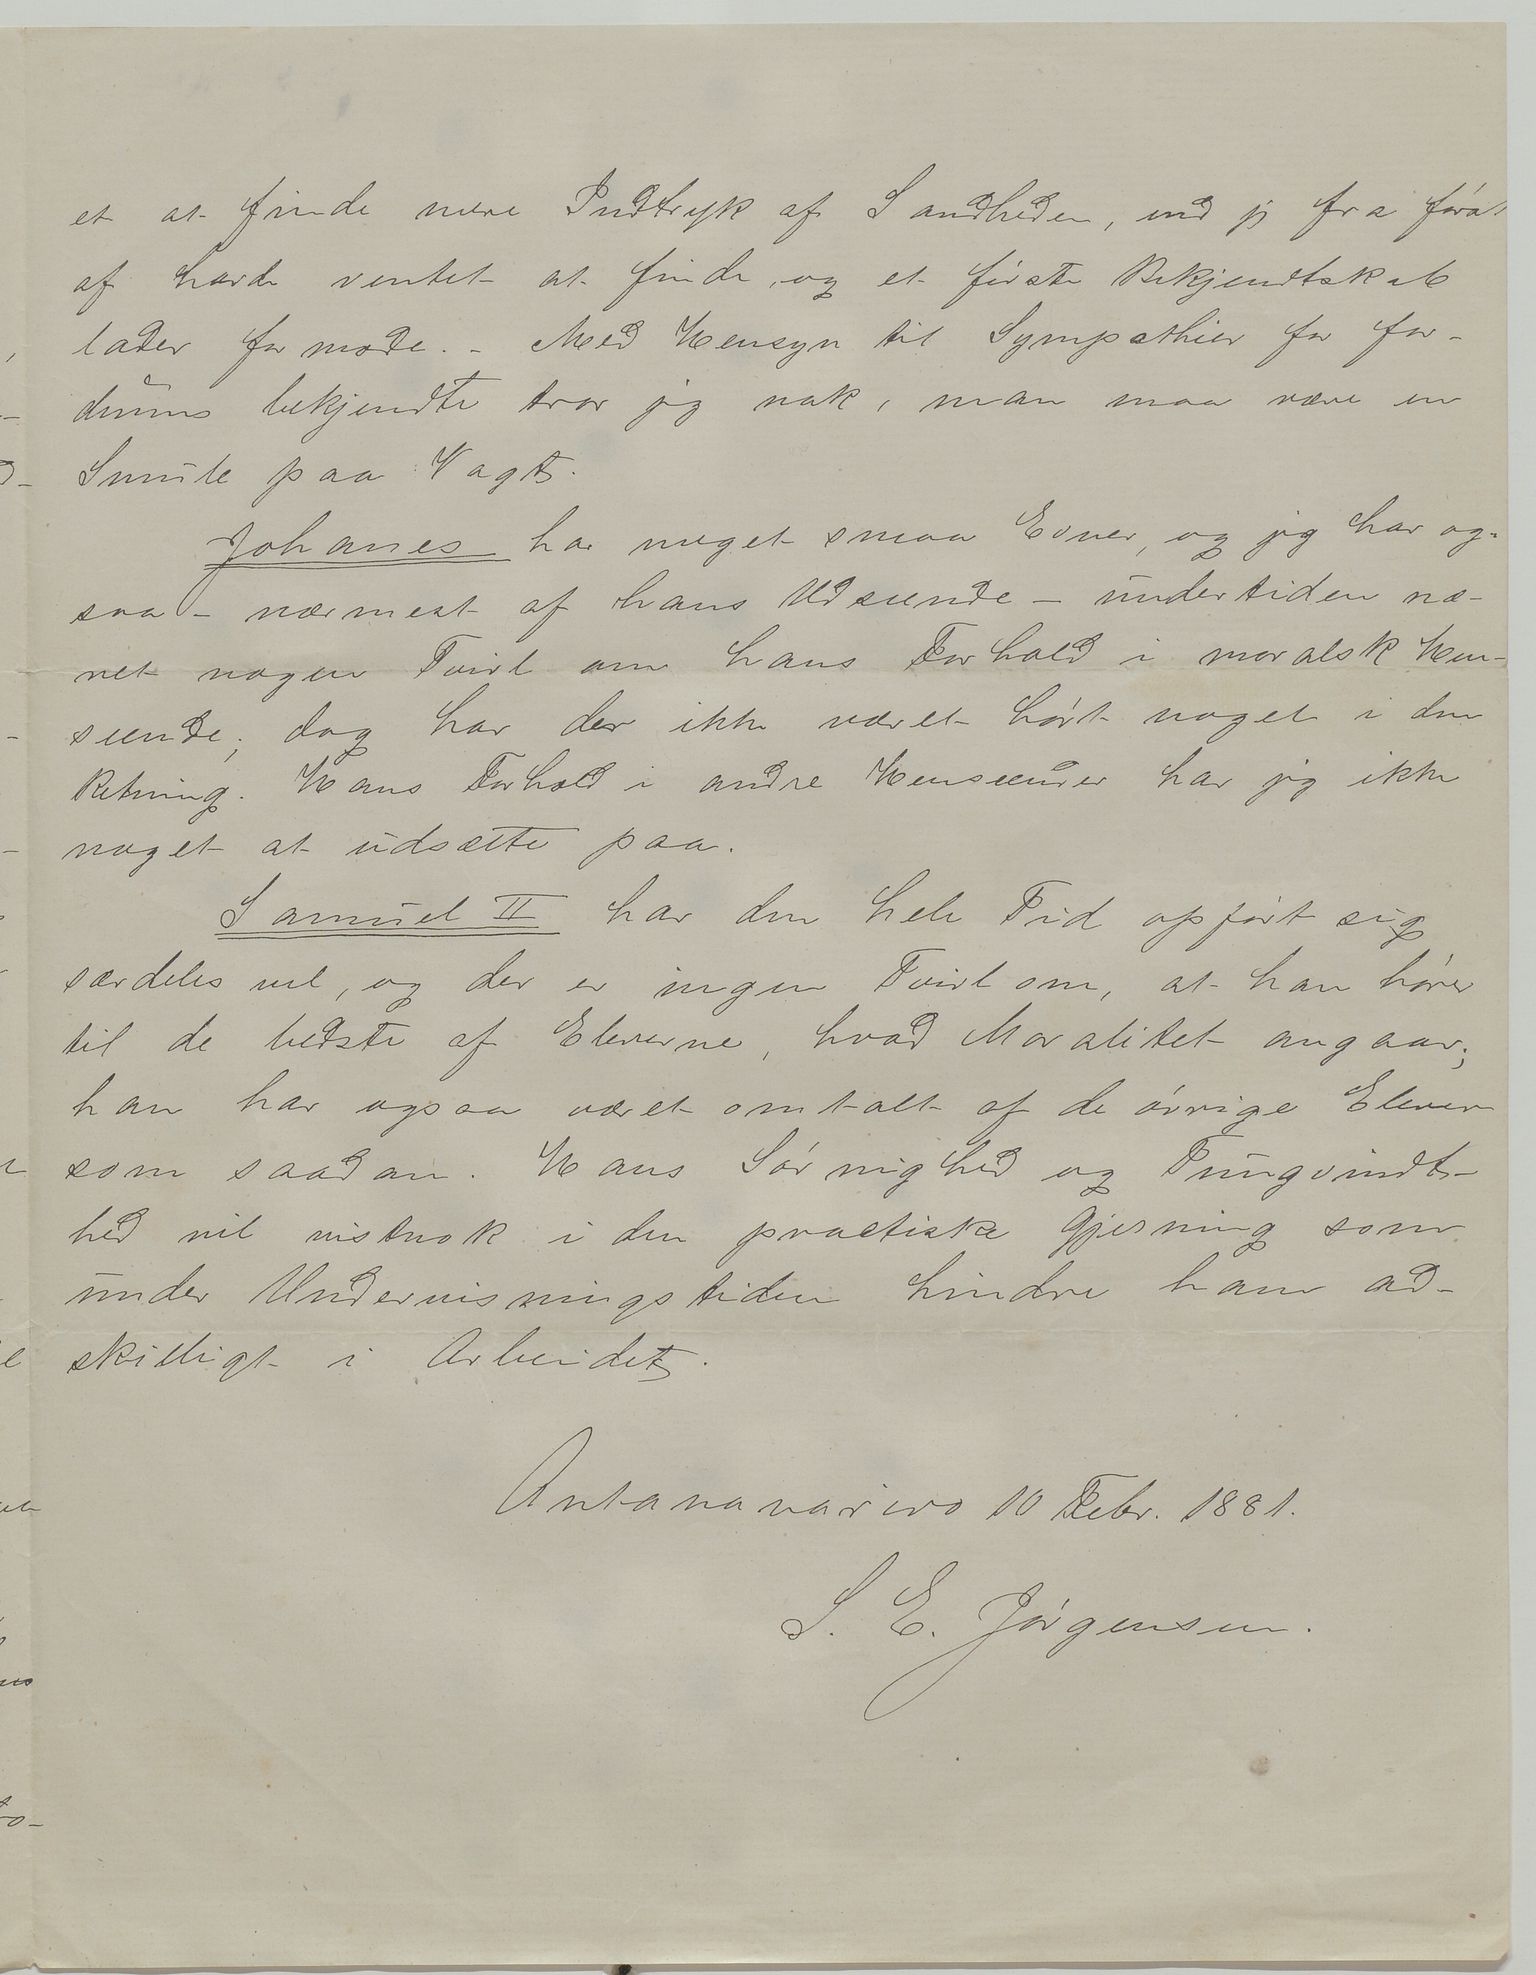 et at finde mere Indtryk af Sandheden, end jeg fra først
af havde ventet at finde, og et første Bekjendtskab
lader formode. - Med Hensyn til Sympathier for for-
dums bekjendte tror jeg nok, man maa være en
Smule paa Vagt.
Johanes har meget smaa Evner, og jeg har og-
saa - nærmest af hans Udseende - undertiden næ-
ret nogen Tvivl om hans Forhold i moralsk Hen-
seende; dog har der ikke været hørt noget i den
Retning. Hans Forhold i andre Henseender har jeg ikke
noget at udsætte paa.
Samuel II har den hele Tid opført sig
særdeles vel, og der er ingen Tvivl om, at han hører
til de bedste af Eleverne, hvad Moralitet angaar;
han har ogsaa været omtalt af de øvrige Elever
som saadan. Hans Sørnighed og Tungvindt-
hed vil vistnok i den practiske Gjerning som
under Undervisningstiden hindre ham ad-
skilligt i Arbeidet.
Antananarivo 10 Febr. 1881.
S. E. Jørgensen.